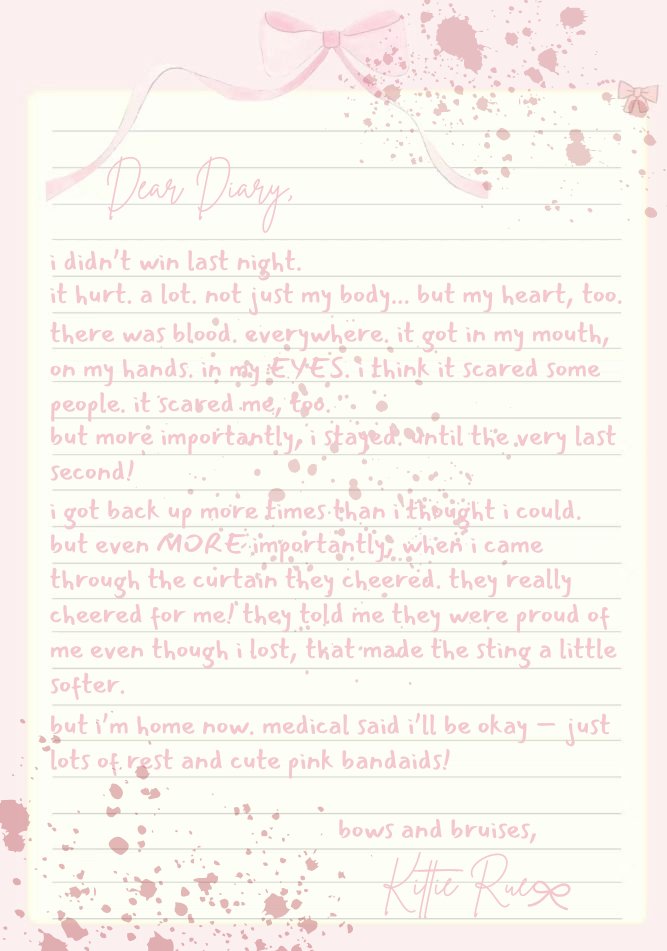 Dear Diary,
i didn't win last night.
it hurt. a lot. not just my body... but my heart, too.
there was blood. everywhere. it got in my mouth,
on my hands. in my EYES. i think it scared some
people. it scared me, too.
but more importantly, i stayed. until the very last
second!
i got back up more times than i thought i could.
but even MORE importantly, when i came
through the curtain they cheered. they really
cheered for me! they told me they were proud of
me even though i lost, that made the sting a little
softer.
but i'm home now. medical said i'll be okay — just
lots of rest and cute pink bandaids!
bows and bruises,
Kittie Rue